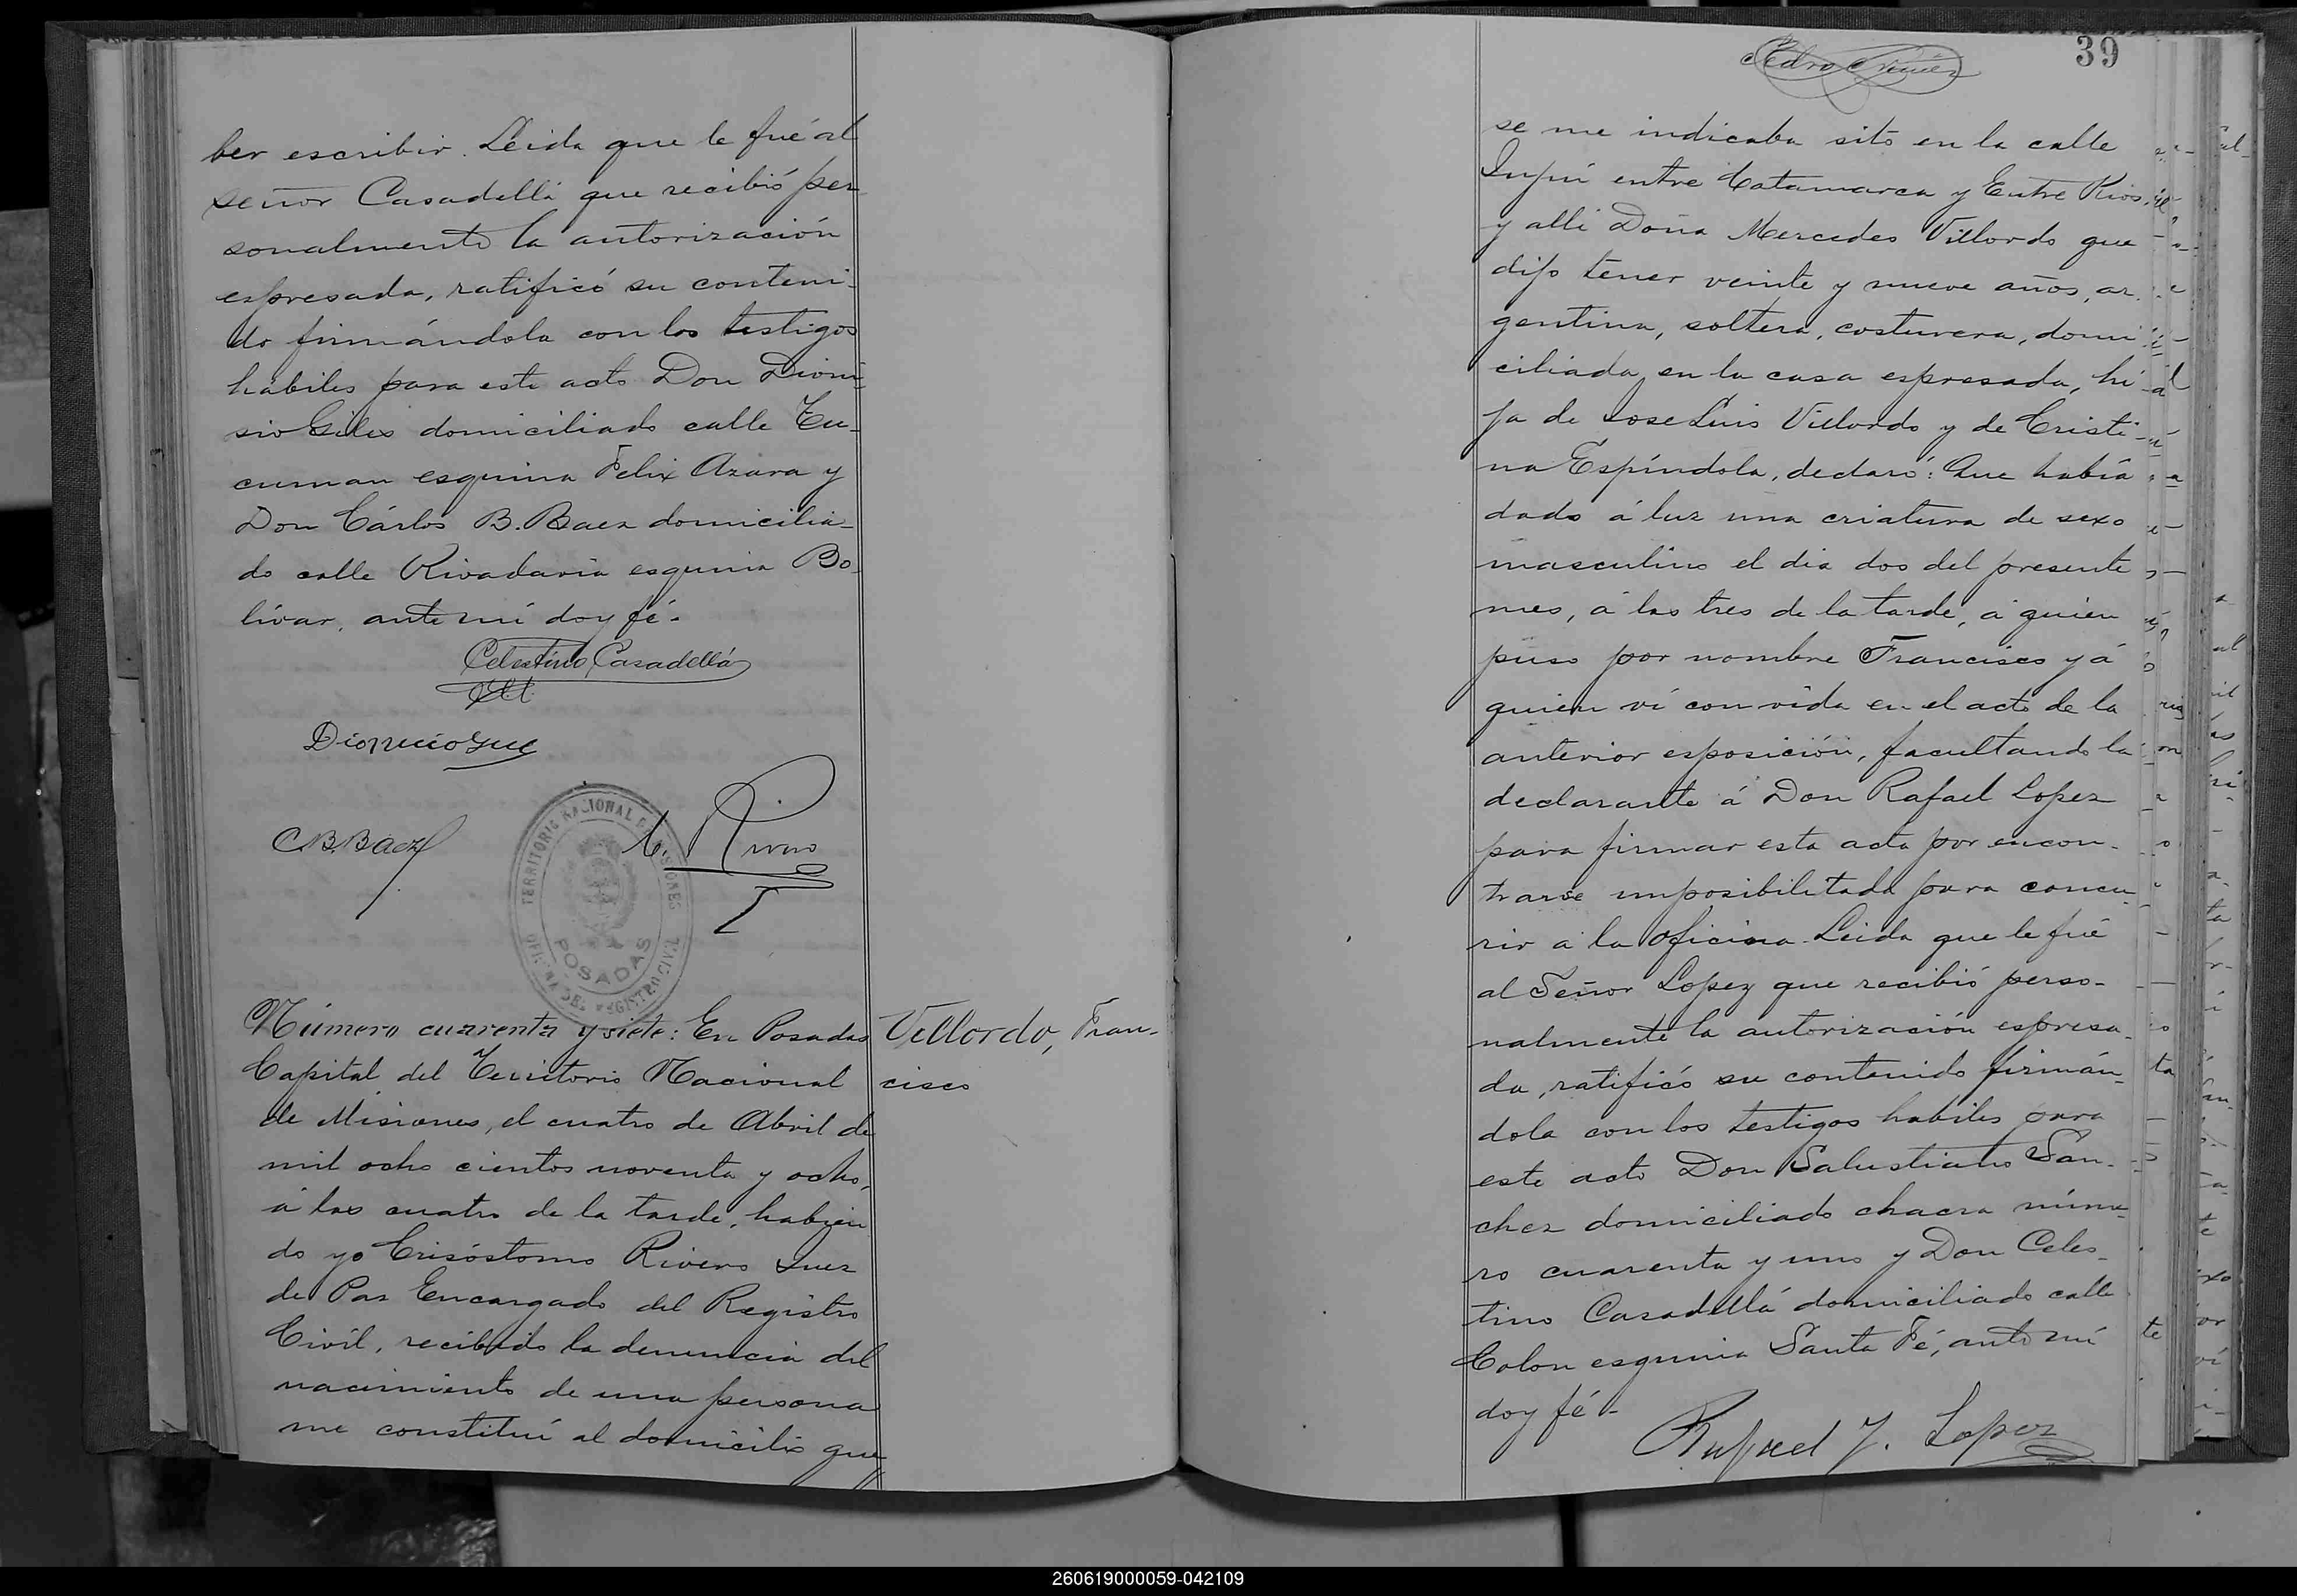 ber escribir. Leida que le fué al
señor Casadellá que recibió per
sonalmente la autorización
espresada, ratificó su conteni-
do firmándola con los testigos
hábiles para este acto Don Dioni-
sio Giles domiciliado calle Tu-
cuman esquina Felix Azara y
Don Cárlos B. Baez domicilia-
do calle Rivadavia esquina Bo-
livar, ante mí doy fé.-
Celestino Casadellá
C.B.Baez
C. Rivero
TERRITORIO NACIONAL DE MISIONES
OFICINA DEL REGISTRO CIVIL
POSADAS
Número cuarenta y siete: En Posadas
Capital del Territorio Nacional
de Misiones, el cuatro de Abril de
mil ocho cientos noventa y ocho,
á las cuatro de la tarde, habien
do yo Crisóstomo Rivero Juez
de Paz Encargado del Registro
Civíl, recibido la denuncia del
nacimiento de una persona
me constituí al domicilio que
Villordo, Fran-
cisco
39
se me indicaba sito en la calle
Junín entre Catamarca y Entre Rios,
y alli Doña Mercedes Villordo que
dijo tener veinte y nueve años, ar
gentina, soltera, costurera, domi
ciliada en la casa espresada, hi
ja de Jose Luis Villordo y de Cristi-
na Espíndola, declaró: Que había
dado á luz una criatura de sexo
masculino el dia dos del presente
mes, á las tres de la tarde, á quien
puso por nombre Francisco y á
quien ví con vida en el acto de la
anterior esposición, facultando la
declarante á Don Rafael Lopez
para firmar esta acta por encon-
trarse imposibilitada para concu-
rir á la oficina. Leida que le fué
al Señor Lopez que recibió perso-
nalmente la autorización espresa-
da, ratificó su contenido firmán-
dola con los testigos habiles para
este acto Don Salustiano San-
chez domiciliado chacra núme-
ro cuarenta y uno y Don Celes-
tino Casadellá domiciliado calle
Colon esquina Santa Fé, ante mí
doy fé.-
Rafael J. Lopez
260619000059-042109